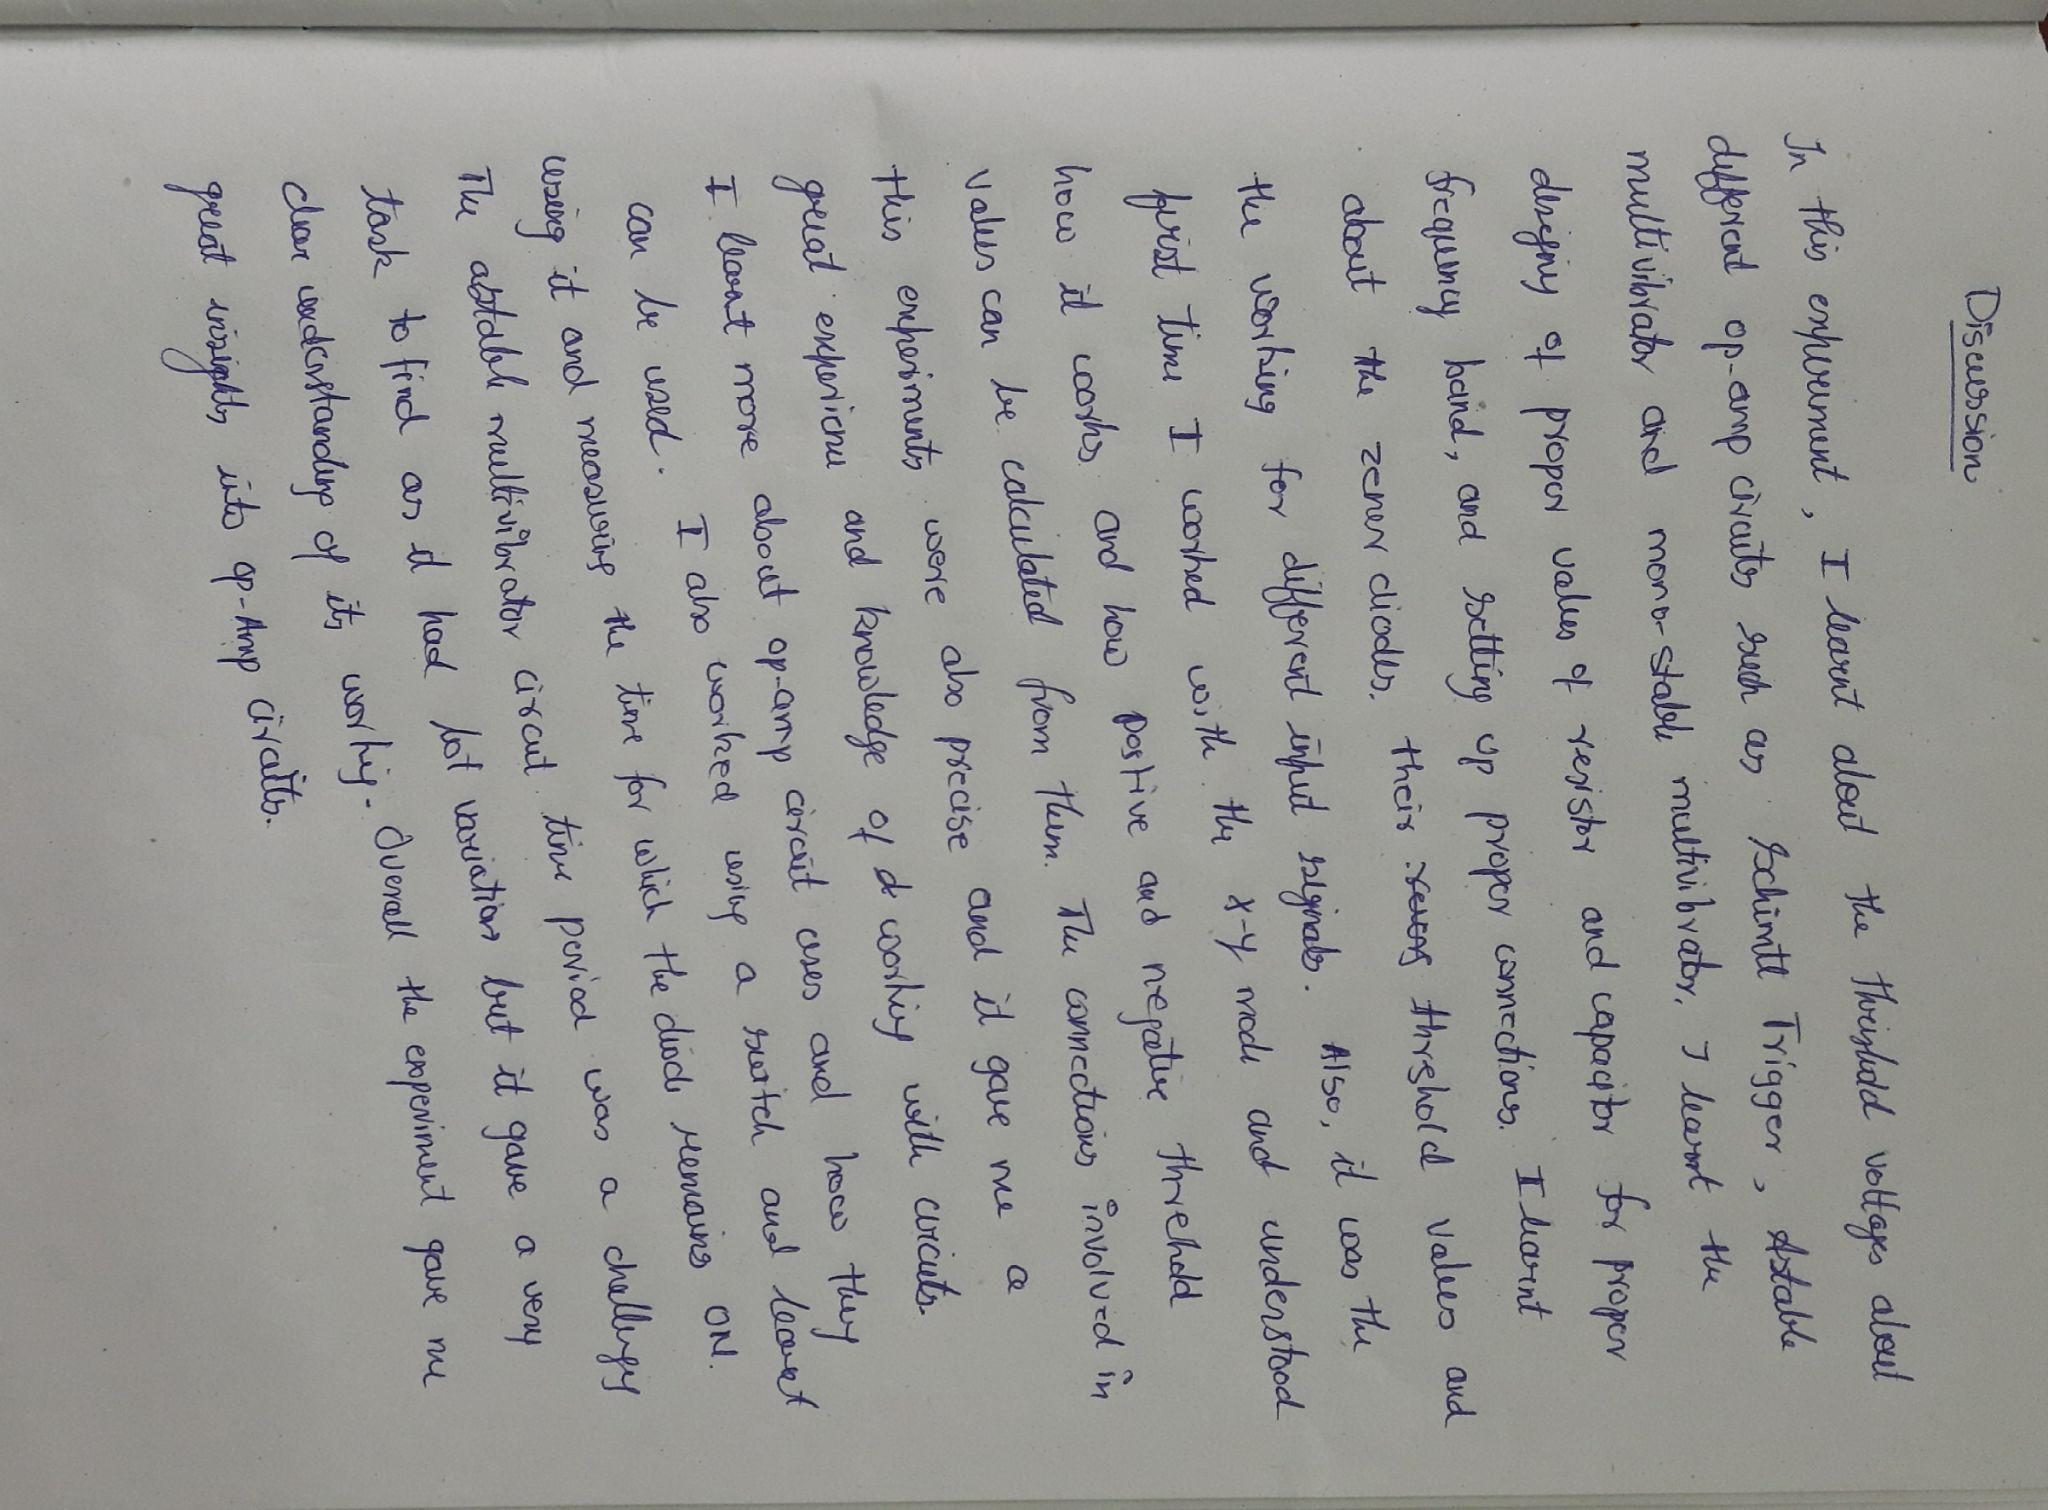 Discussion
In this experiment, I learnt about the threshold voltages about
different op-amp circuits such as Schimtt Trigger, Astable
multivibrator and mono-stable multivibrator. I learnt the
designg of proper values of resistor and capacitor for proper
frequency band, and setting up proper connections. I learnt
about the zener diodes. their threshold values and
the working for different input signals. Also, it was the
first time I worked with the x-y mode and understood
how it works. and how positive and negative threhold
values can be calculated from them. The connections involved in
this experiments were also precise and it gave me a
great experience and knowledge of working with circuits.
I learnt more about op-amp circuit uses and how they
can be used. I also worked using a switch and learnt
using it and measuring the time for which the diode remains ON.
The astable multivibrator circuit time period was a challenging
task to find as it had lot variations but it gave a very
clear understanding of its working. Overall the experiment gave me
great insights into op-Amp circuits.